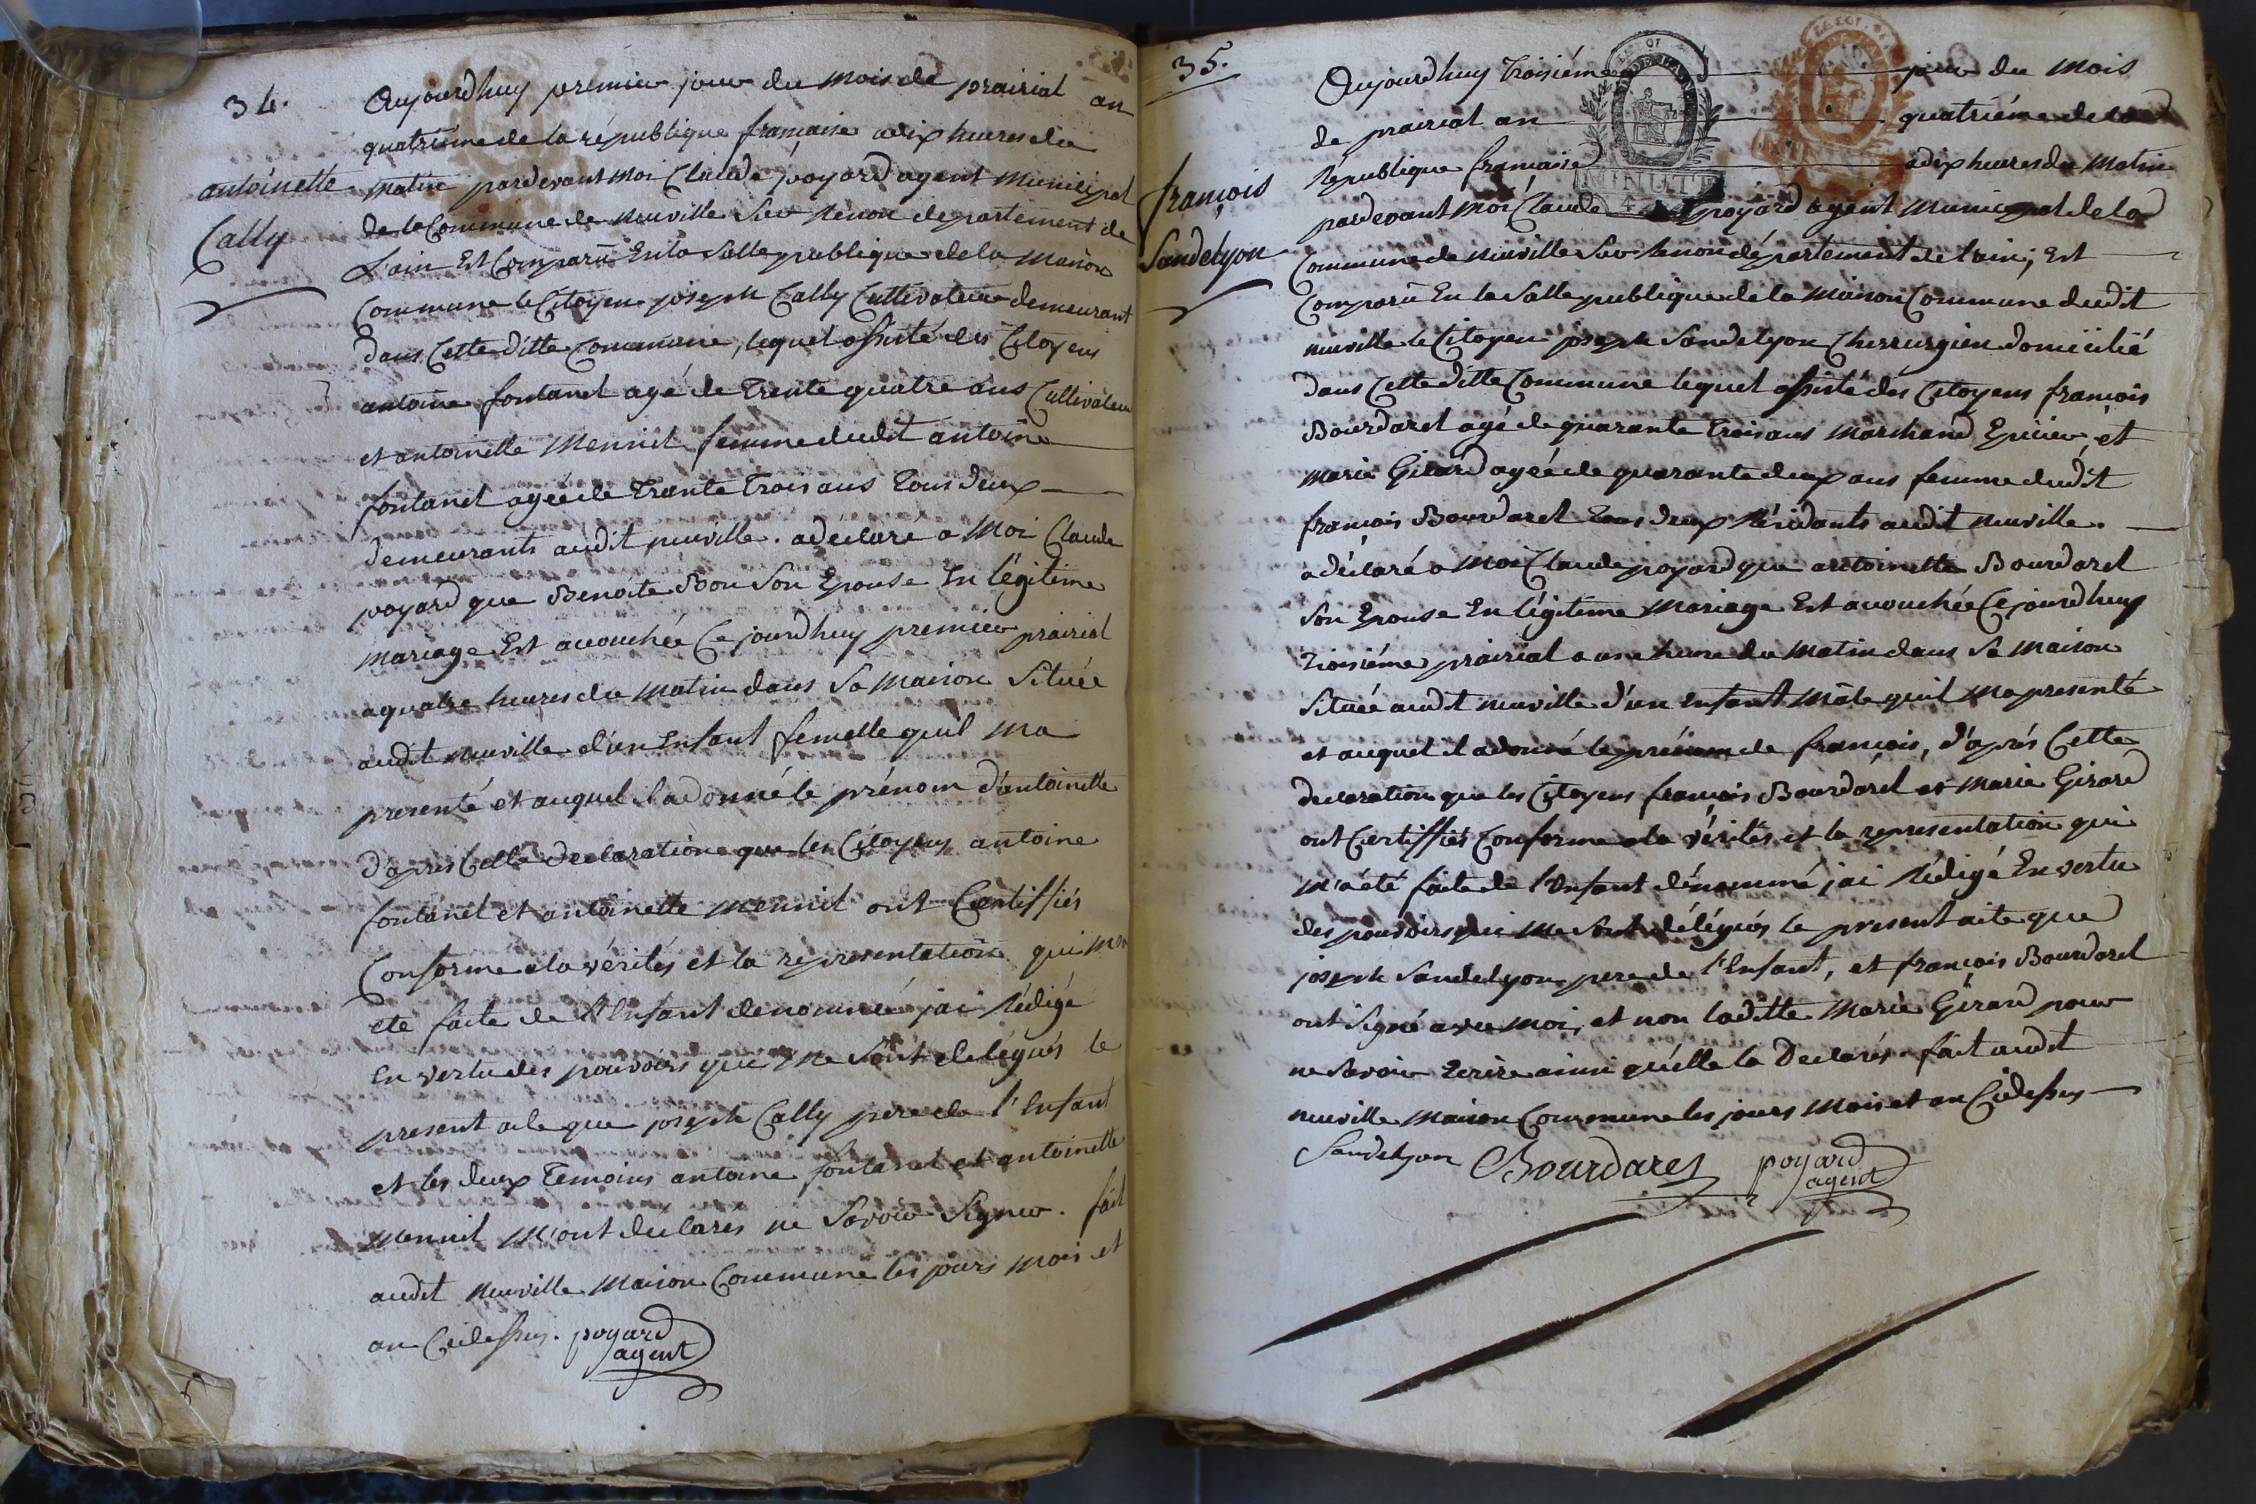 34.
antoinette
Cally
Aujourdhuy premier jour du mois de prairial an
quatriéme de la république française a dix heures du
matin pardevant moi Claude poyard agent municipal
de la Commune de neuville sur Renon departement de
L'ain Est Comparû En la salle publique de la maison
Commune le Citoyen joseph Cally Cultivateur demeurant
dans Cette ditte Commune, lequel assisté des Citoyens
antoine fontanel agé de Trente quatre ans Cultivateur
et antoinette Mennil femme dudit antoine
fontanel agée de Trente Trois ans Tous deux
demeurants audit neuville. a déclaré a Moi Claude
poyard que Benoite Bon Son Epouse En légitime
mariage Est accouchée Ce jourdhuy premier prairial
a quatre heures du matin dans Sa maison Située
audit neuville d'un Enfant femelle quil ma
presenté et auquel il a donné le prénom d'antoinette
d'apres Cette declaration que les Citoyens antoine
fontanel et antoinette Mennil ont Certiffiés
Conforme a la vérités et la representation qui ma
eté faite de l'Enfant denommé j'ai Rédigé
En vertu des pouvoirs qui me Sont delégués le
present acte que joseph Cally pere de l'Enfant
et les deux Temoins antoine fontanel et antoinette
Mennil M'ont déclarés ne Savoir Signer. fait
audit neuville Maison Commune les jours mois et
an Cidessus. poyard
agent
35.
françois
Sandelyon
Aujourdhuy Troisiéme jour du mois
de prairial an quatriéme de la
République française a dix heures du matin
pardevant moi Claude poyard agent municipal de la
Commune de neuville Sur Renon département de l'ain; Est
Comparû En la Salle publique de la Maison Commune dudit
neuville le Citoyen joseph Sandelyon Chirrurgien domicilié
dans Cette ditte Commune lequel assisté des Citoyens françois
Bourdarel agé de quarante Trois ans Marchand Epicier, et
Marie Girard agée de quarante deux ans femme dudit
françois Bourdarel Tous deux Résidants audit neuville.
a déclaré a Moi Claude poyard que antoinette Bourdarel
Son Epouse En légitime Mariage Est accouchée Ce jourdhuy
Troisiéme prairial a une heure du Matin dans Sa Maison
Située audit neuville d'un Enfant Mâle quil Ma presenté
et auquel il a donné le prénom de françois, d'aprés Cette
declaration que les Citoyens françois Bourdarel et Marie Girard
ont Certiffiés Conforme a la vérités et la representation qui
M'a été faite de l'Enfant dénommé j'ai Rédigé En vertu
des pouvoirs qui me Sont délégués le present acte que
joseph Sandelyon pere de l'Enfant, et françois Bourdarel
ont Signé avec moi, et non laditte Marie Girard pour
ne Savoir Ecrire ainsi qu'elle la Declarés. fait audit
neuville Maison Commune les jours Mois et an Cidessus
Sandelyon Bourdarel poyard
agent
MINUTE